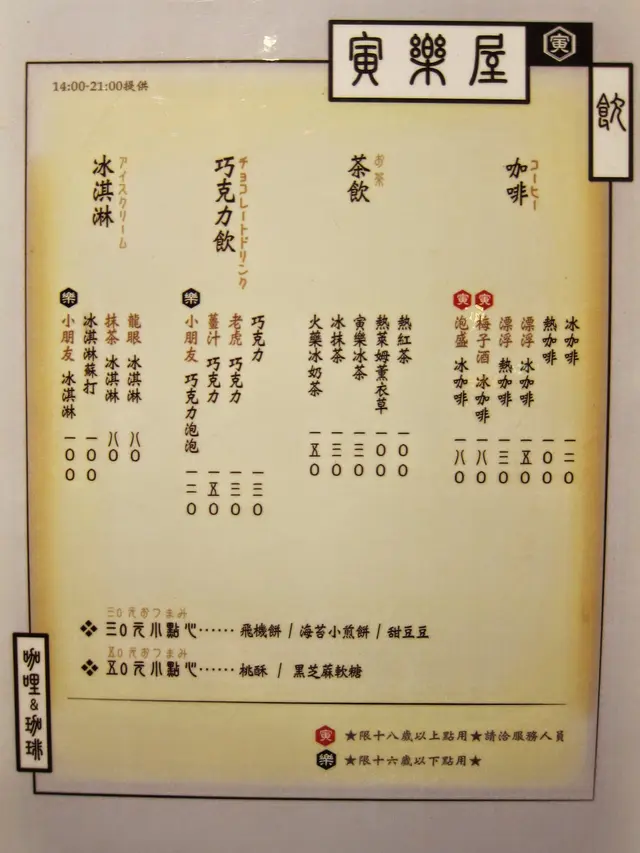 寅樂屋
寅
飲
14:00-21:00提供
咖啡
コーヒー
冰咖啡 一二0
熱咖啡 一00
漂浮 冰咖啡 一五0
漂浮 熱咖啡 一三0
寅 梅子酒 冰咖啡 一八0
寅 泡盛 冰咖啡 一八0
茶飲
お茶
熱紅茶 一00
熱萊姆薰衣草 一00
寅樂冰茶 一三0
冰抹茶 一三0
火藥冰奶茶 一五0
巧克力飲
チョコレートドリンク
巧克力 一三0
老虎 巧克力 一三0
薑汁 巧克力 一五0
樂 小朋友 巧克力泡泡 一二0
冰淇淋
アイスクリーム
龍眼 冰淇淋 八0
抹茶 冰淇淋 八0
冰淇淋蘇打 一00
樂 小朋友 冰淇淋 一00
三0元おつまみ
三0元小點心⋯⋯ 飛機餅 / 海苔小煎餅 / 甜豆豆
五0元おつまみ
五0元小點心⋯⋯ 桃酥 / 黑芝蔴軟糖
寅 ★限十八歲以上點用★請洽服務人員
樂 ★限十六歲以下點用★
咖哩&珈琲